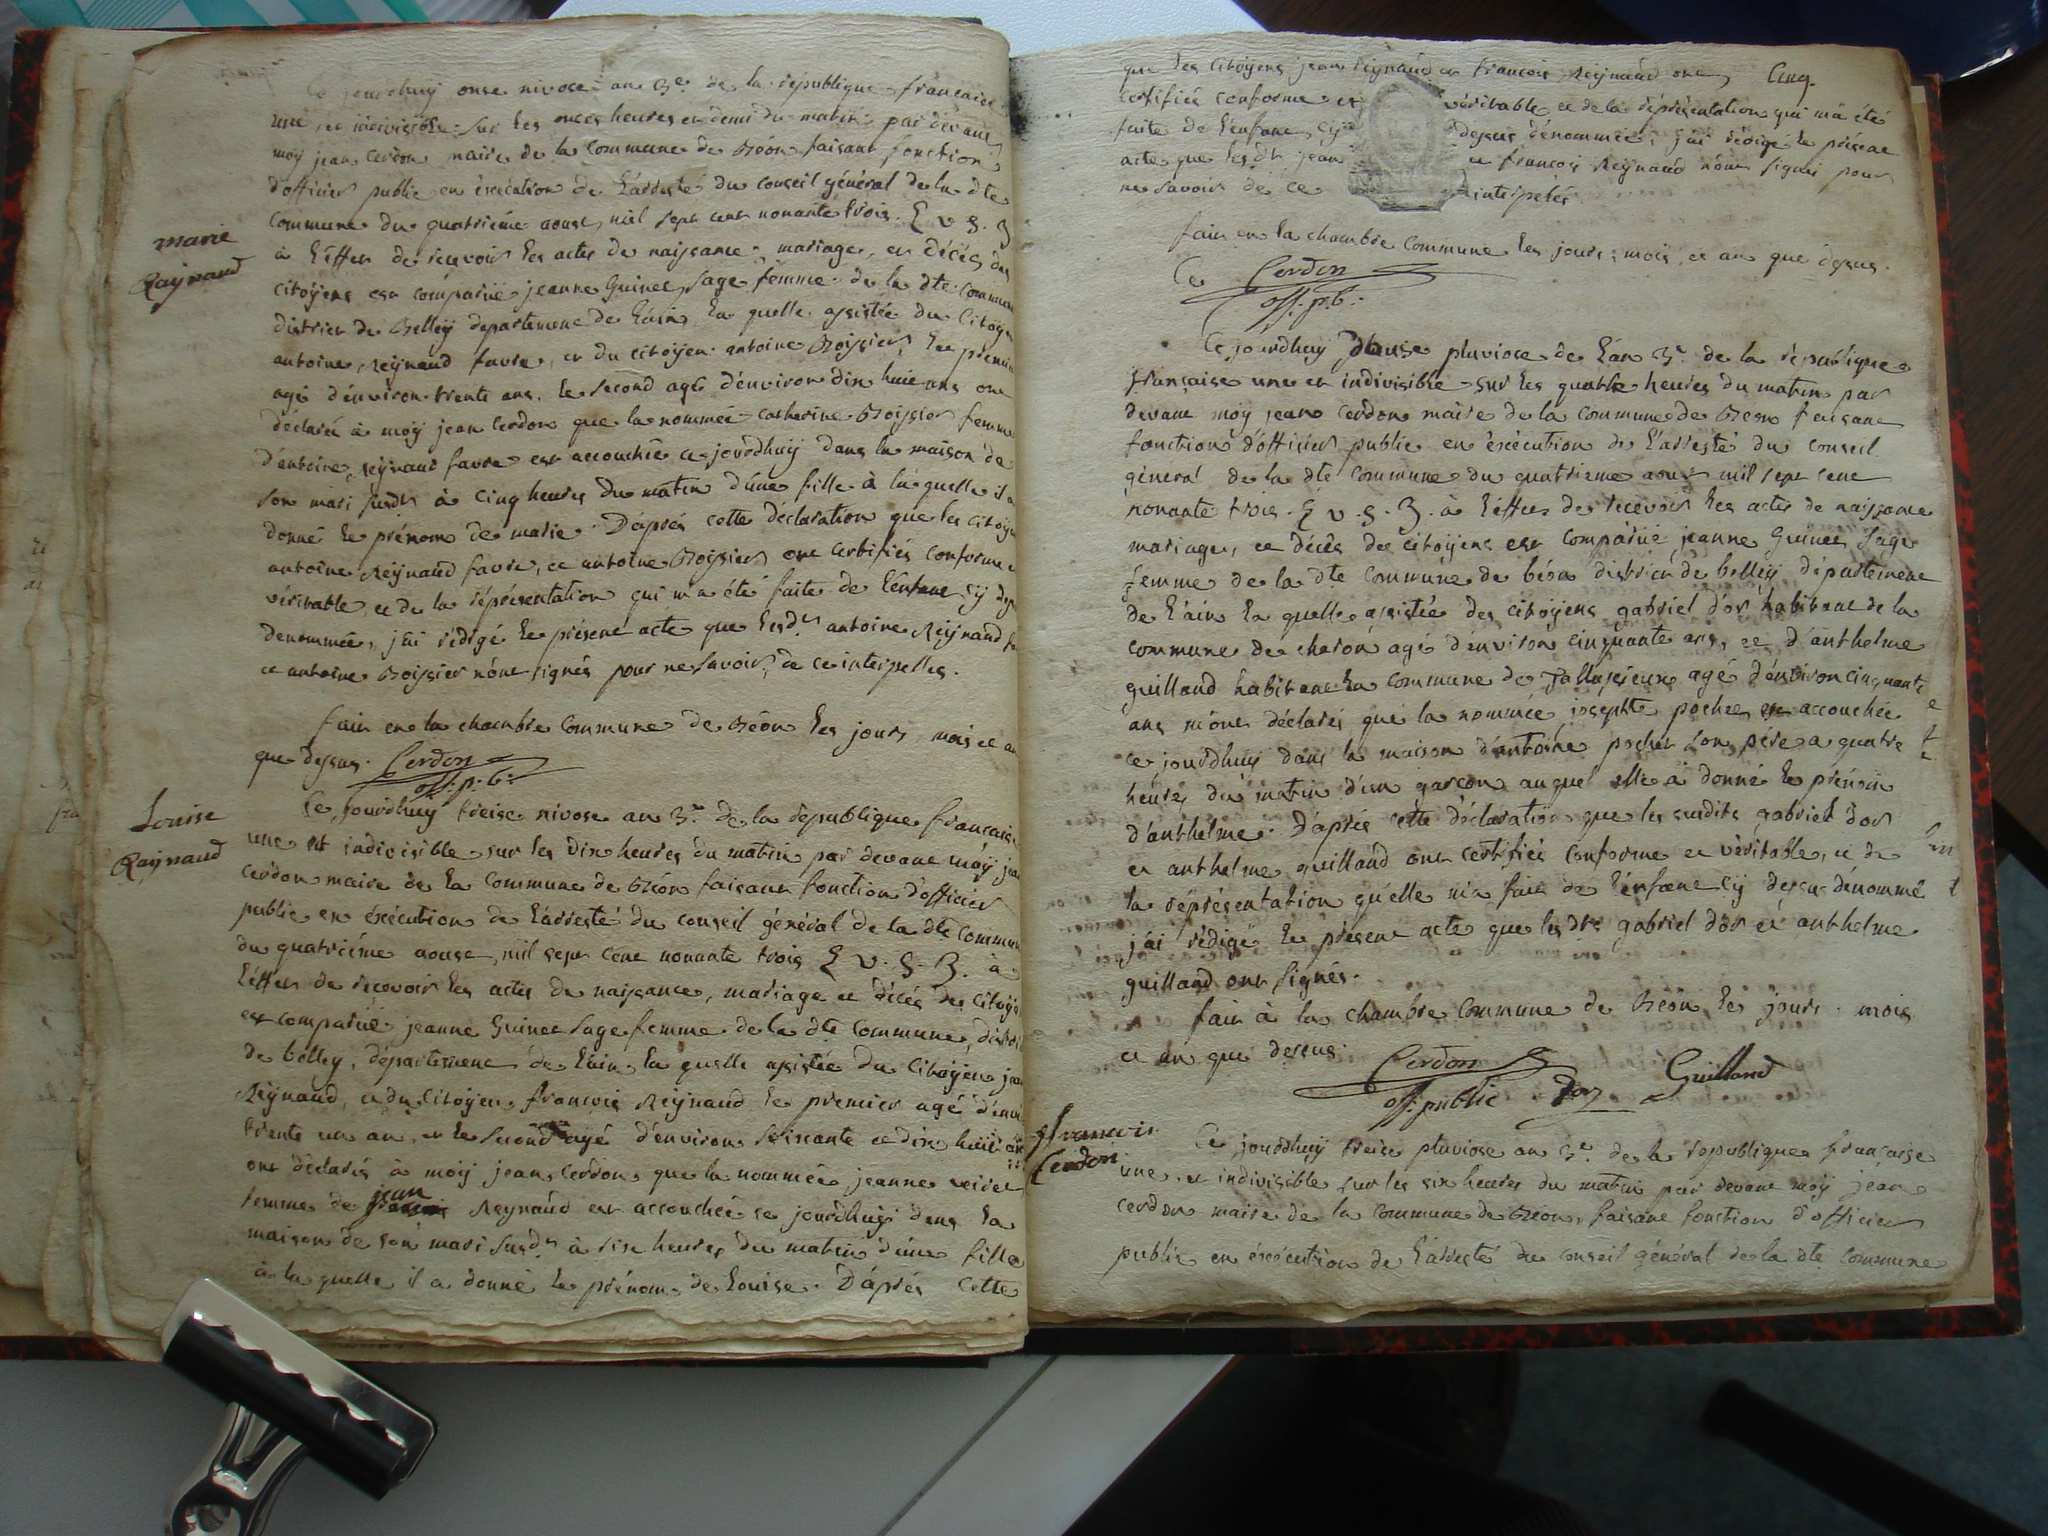 Ce jourdhuÿ onse nivose an 3.e de la république francaise
une et indivisible sur les onces heures et demi du matin par devant
moÿ jean cerdon maire de la commune de Béon faisant fonction
d'officier public en éxécution de l'arresté du conseil général de la dte
commune du quatrieme aoust mil sept cent nonante trois. E v. S. 3
à l'effet de recevoir les actes de naissance, mariage, et décés des
citoÿens est comparüe jeanne Guinet sage femme de la dte commune
district de Belleÿ departement de l'ain la quelle assistée du citoÿen
antoine reÿnaud favre, et du citoÿen antoine Boissier, le premier
agé d'environ trente ans, le second agé d'environ dix huit ans ont
déclaré à moÿ jean Cerdon que la nommée catherine Boissier femme
d'antoine reÿnaud favre est accouchée ce jourdhuÿ dans la maison de
son mari susdt à cinq heures du matin d'une fille à la quelle il a
donné le prénom de marie. D'aprés cette declaration que les citoÿens
antoine Reÿnaud favre, et antoine Boissier ont certifiés conforme et
véritable et de la réprésentation qui m'a été faite de l'enfant cÿ dessus
denommée, j'ai rédigé le présent acte que lesdts antoine Reÿnaud fa
et antoine Boissier n'ont signés pour ne savoir de ce interpellés.
marie
Raynaud
fait en la chambre commune de Béon les jours, mois et an
que dessus. Cerdon
off. p.b.
Louise
Raynaud
Ce jourdhuÿ treise nivose an 3.e de la république francaise
une et indivisible sur les dix heures du matin par devant moÿ jean
cerdon maire de la commune de Béon faisant fonction d'officier
public en éxécution de l'arresté du conseil général de la dte commune
du quatriéme aoust mil sept cent nonante trois E v. S. 3. à
l'effet de recevoir les actes de naissance, mariage et décés des citoÿens
est comparüe jeanne Guinet sage femme de la dte commune, district
de belley, département de l'ain la quelle assistée du citoÿen jean
Reÿnaud, et du citoÿen francois Reÿnaud le premier agé d'environ
trente un an, et le second agé d'environ soixante et dix huit ans
ont déclarés à moÿ jean Cerdon que la nommée jeanne
femme de jean Reÿnaud est accouchée ce jourdhuÿ dans la
maison de son mari susdt à six heures du matin d'une fille
à la quelle il a donné le prénom de Louise. D'aprés cette
que les citoÿens jean reÿnaud et francois Reÿnaud ont Cinq.
certifiés conforme et véritable et de la réprésentation qui m'a été
faite de l'enfant cÿ dessus dénommée, j'ai rédigé le présent
acte que lesdts jean et francois Reÿnaud n'ont signés pour
ne savoir de ce interpelés
fait en la chambre commune les jours, mois, et an que dessus.
Ce Cerdon
off. p.b.
Ce jourdhuÿ douse pluviose de l'an 3.e de la république
française une et indivisible sur les quatre heures du matin par
devant moÿ jean cerdon maire de la commune de Béon faisant
fonction d'officier public en éxécution de l'arresté du conseil
géneral de la dte commune du quatrieme aoust mil sept cent
nonante trois. E v. S. 3. à l'effet de recevoir les actes de naissance
mariage, et décés des citoÿens est comparüe jeanne Guinet sage
femme de la dte commune de béon district de belleÿ département
de l'ain la quelle assistée des citoÿens gabriel d'or habitant de la
commune de agé d'environ cinquante ans, et d'anthelme
guilland habitant la commune de Tallissieux agé d'environ cinquante
ans m'ont déclarés que la nommée josephte pochet est accouchée
ce jourdhuÿ dans la maison d'antoine pochet son pére a quatre
heures du matin d'un garcon auquel elle à donné le prénom
d'anthelme. D'aprés cette déclaration que les susdits gabriel dor
et anthelme guilland ont certifiés conforme et véritable, et de
la réprésentation quelle m'a fait de l'enfant cÿ dessus dénommé
j'ai rédigé le présent acte que lesdts gabriel dor et anthelme
guilland ont signés.
fait à la chambre commune de Béon les jours, mois
et an que dessus.
Cerdon off. public Dor Guilland
francois
Cerdon
Ce jourdhuÿ treise pluviose an 3.e de la republique francaise
une, et indivisible sur les six heures du matin par devant moÿ jean
cerdon maire de la commune de Béon, faisant fonction d'officier
public en éxécution de l'arresté du conseil général de la dte commune